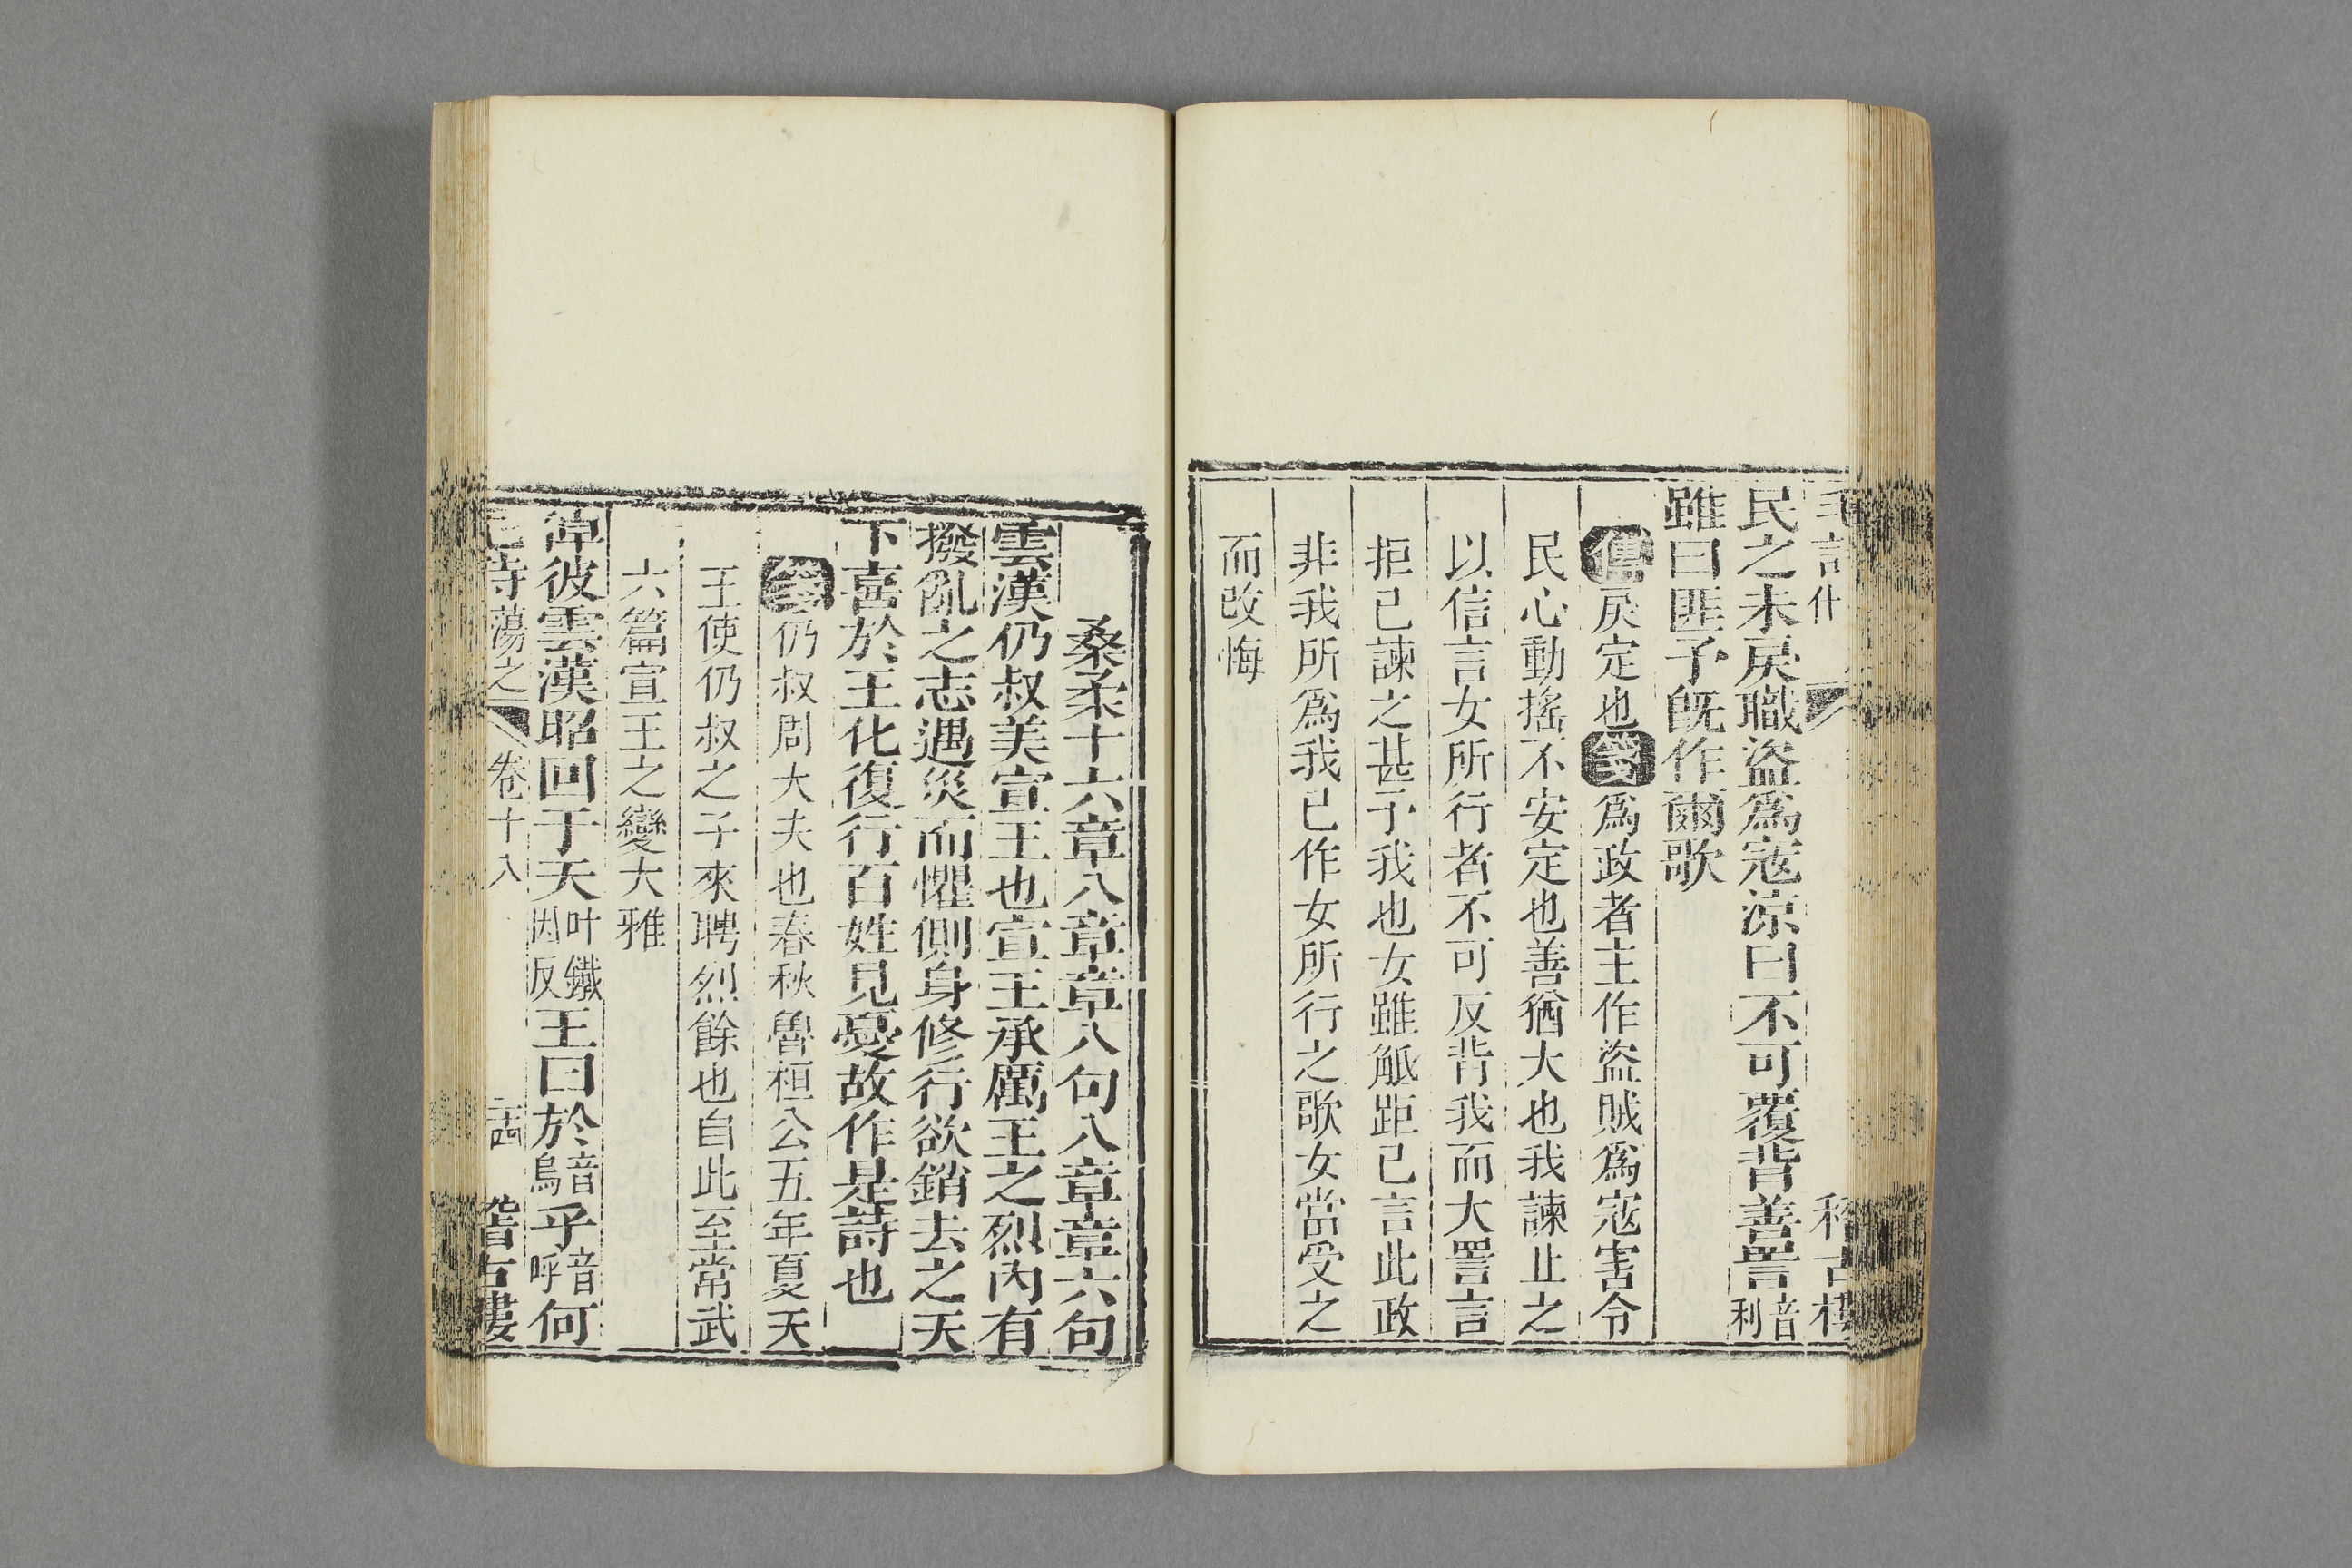 民之未戾職盜爲寇涼曰不可覆背善詈音利
雖曰匪予旣作爾歌
傳戾定也箋爲政者主作盜賊爲寇害令
民心動搖不安定也善猶大也我諫止之
以信言女所行者不可反背我而大詈言
拒己諫之甚予我也女雖觝距己言此政
非我所爲我已作女所行之歌女當受之
而改悔
桑柔十六章八章章八句八章章六句
雲漢仍叔美宣王也宣王承厲王之烈內有
撥亂之志遇災而懼側身修行欲銷去之天
下喜於王化復行百姓見憂故作是詩也
箋仍叔周大夫也春秋魯桓公五年夏天
王使仍叔之子來聘烈餘也自此至常武
六篇宣王之變大雅
倬彼雲漢昭回于天叶鐵因反王曰於音烏乎音呼何
蕩之 卷十八